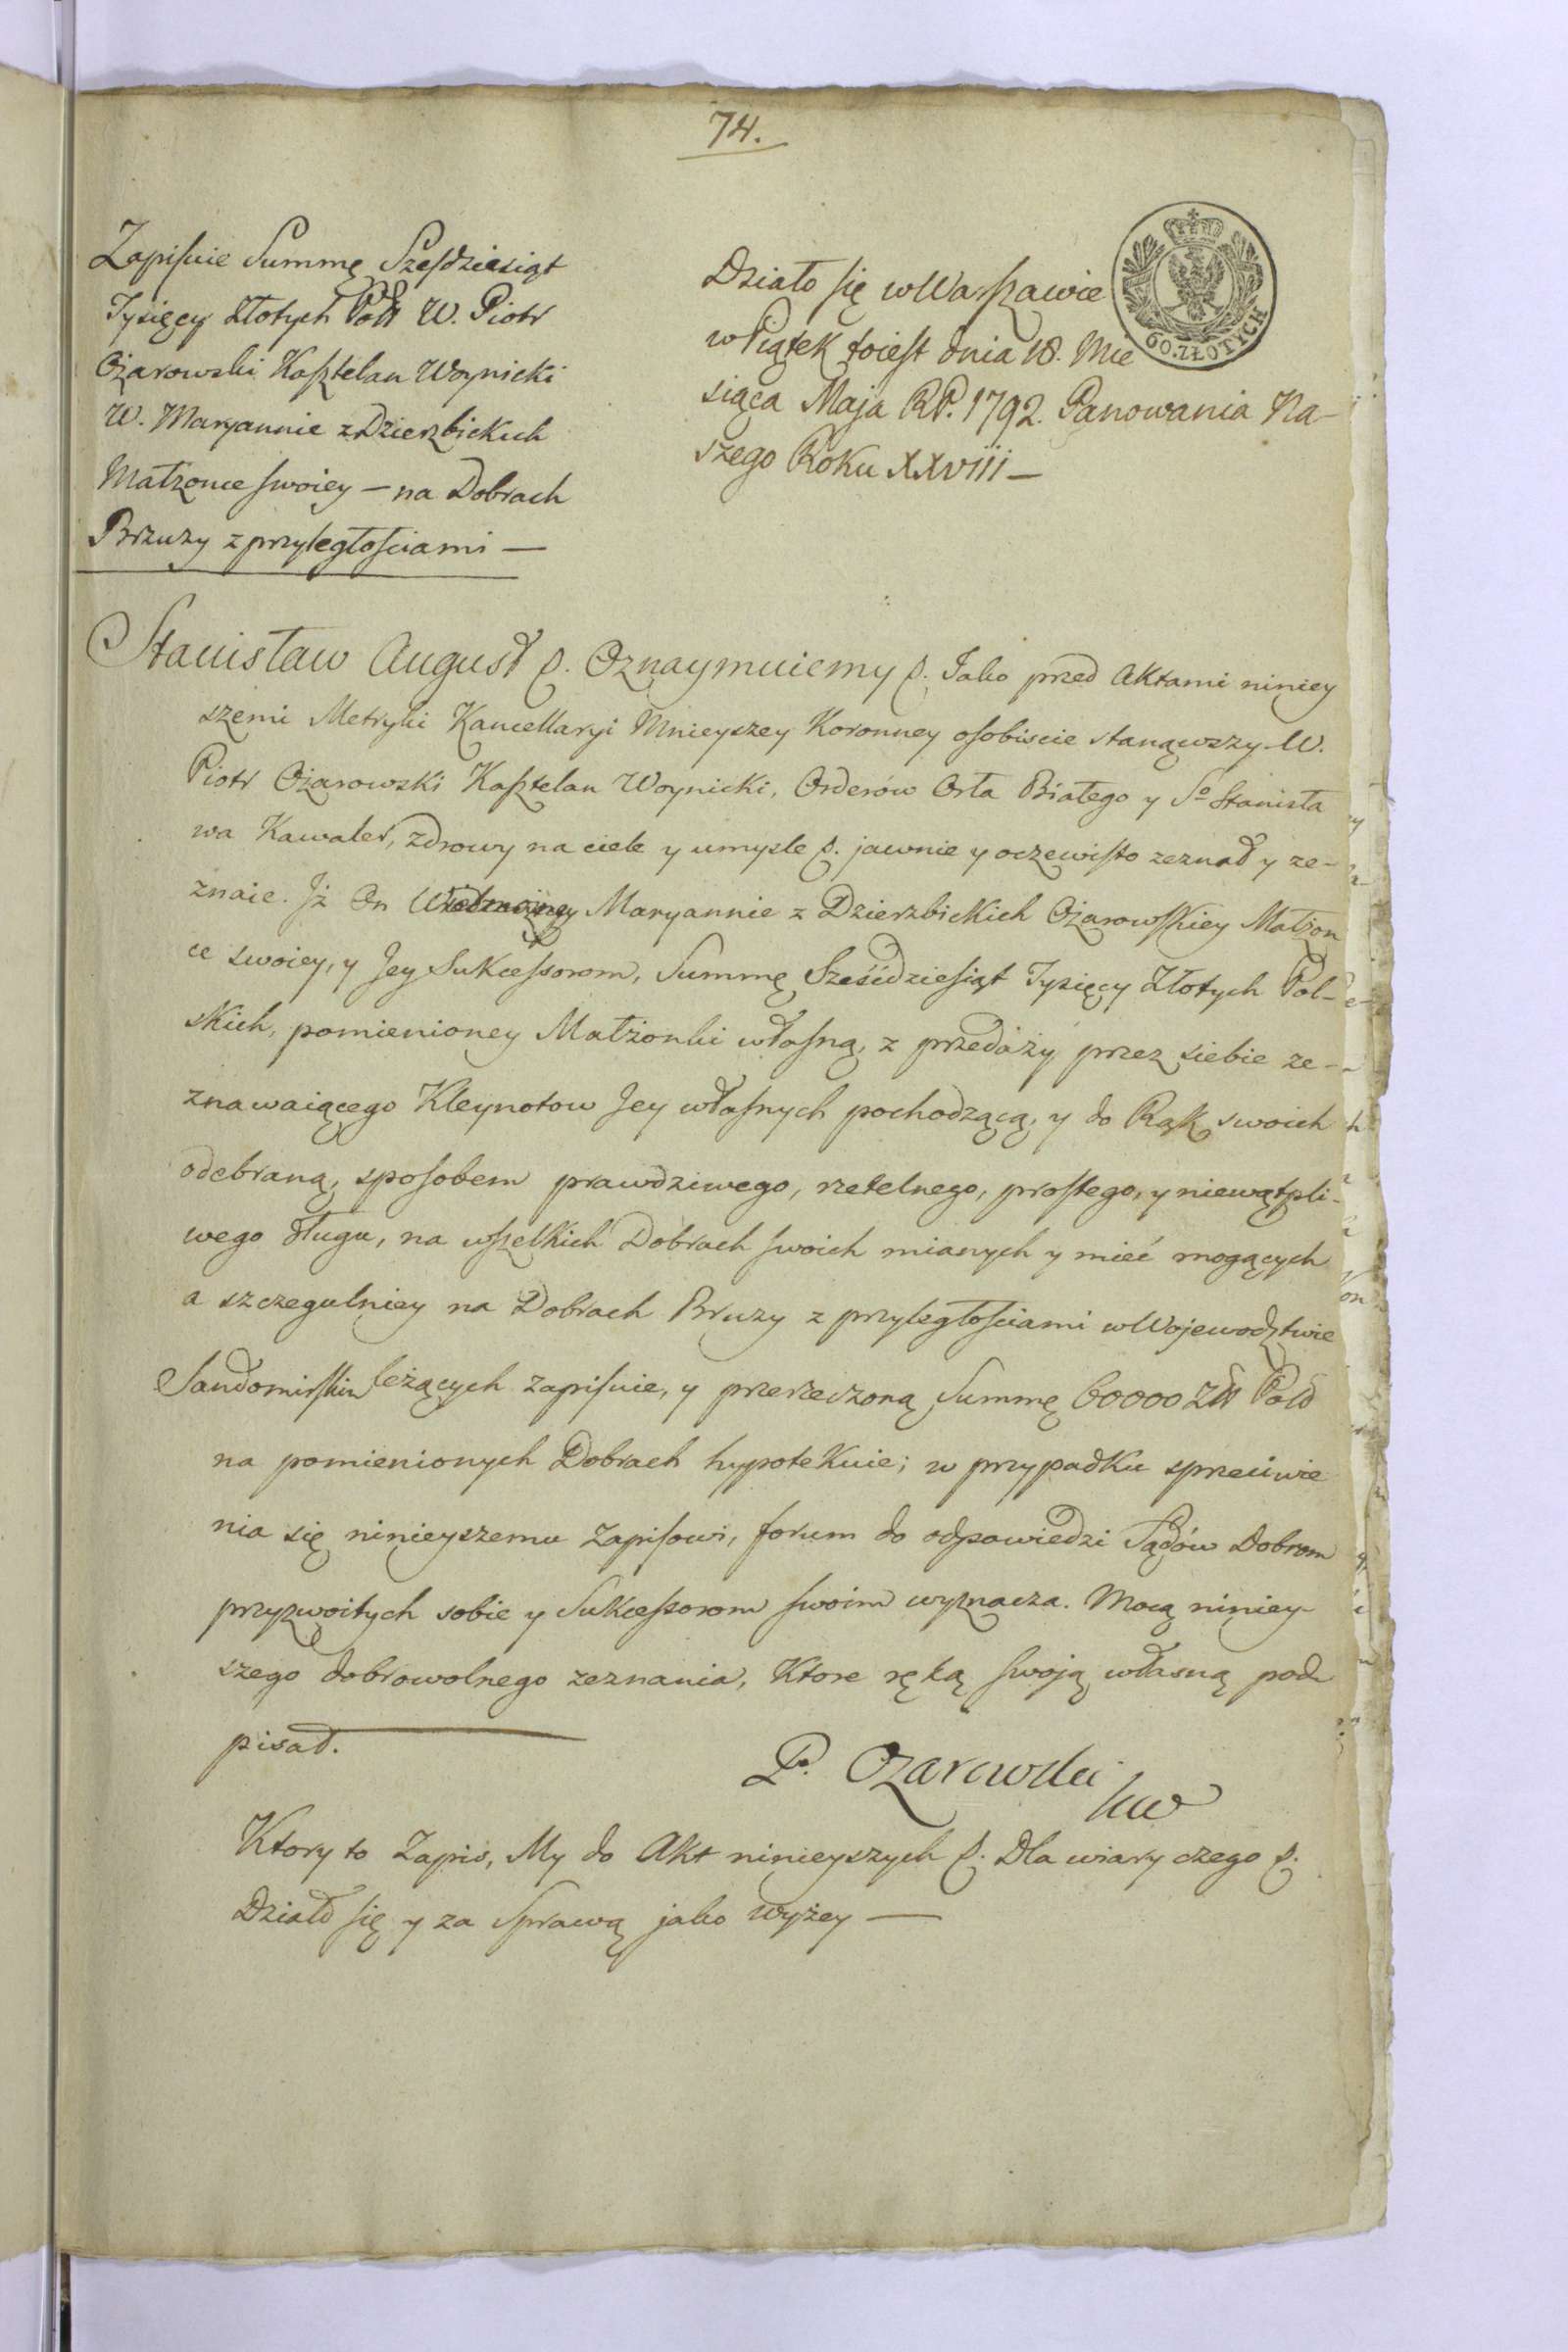 74.
Zapisuie Summę Szesdziesiąt
Tysięcy Złotych Polł W. Piotr
Ożarowski Kasztelan Woynicki
W. Maryannie z Dzierzbickich
Małzonce swoiey — na Dobrach
Brzuzy z przyległościami —
Działo się w Warszawie
w Piątek toiest dnia 18. Mie
siąca Maja RP. 1792. Panowania Na-
szego Roku XXVIII —
60. ZŁOTYCH
Stanisław August p. Oznaymuiemy p. Jako przed Aktami niniey
szemi Metryki Kancellaryi Mnieyszey Koronney osobiscie stanąwszy W.
Piotr Ożarowski Kasztelan Woynicki, Orderów Orła Białego y So Stanisła
wa Kawaler, zdrowy na ciele y umysle p. jawnie y oczewisto zeznał y ze-
znaie. Jż On Maryannie z Dzierzbickich Ożarowskiey Małżon
ce swoiey, y Jey Sukcessorom, Summę Sześćdziesiąt Tysięcy Złotych Pol-
skich, pomienioney Małżonki własną, z przedaży przez siebie ze-
znawaiącego Kleynotow Jey własnych pochodzącą, y do Rąk swoich
odebraną, sposobem prawdziwego, rzetelnego, prostego, y niewątpli-
wego długu, na wszelkich Dobrach swoich mianych y mieć mogących
a szczegulniey na Dobrach Bruzy z przyległościami w Wojewodztwie
Sandomirskim leżących zapisuie, y przerzeczoną Summę 60000 Złł Pold
na pomienionych Dobrach hypotekuie; w przypadku sprzeciwie
nia się ninieyszemu Zapisowi, forum do odpowiedzi Sądów Dobrom
przyzwoitych sobie y Sukcessorom swoim wyznacza. Mocą niniey-
szego dobrowolnego zeznania, Ktore ręką swoją własną pod
pisał.
P. Ożarowski
kw
Ktory to Zapis, My do Akt ninieyszych p. Dla wiary czego p.
Działo się y za Sprawą jako wyżey —